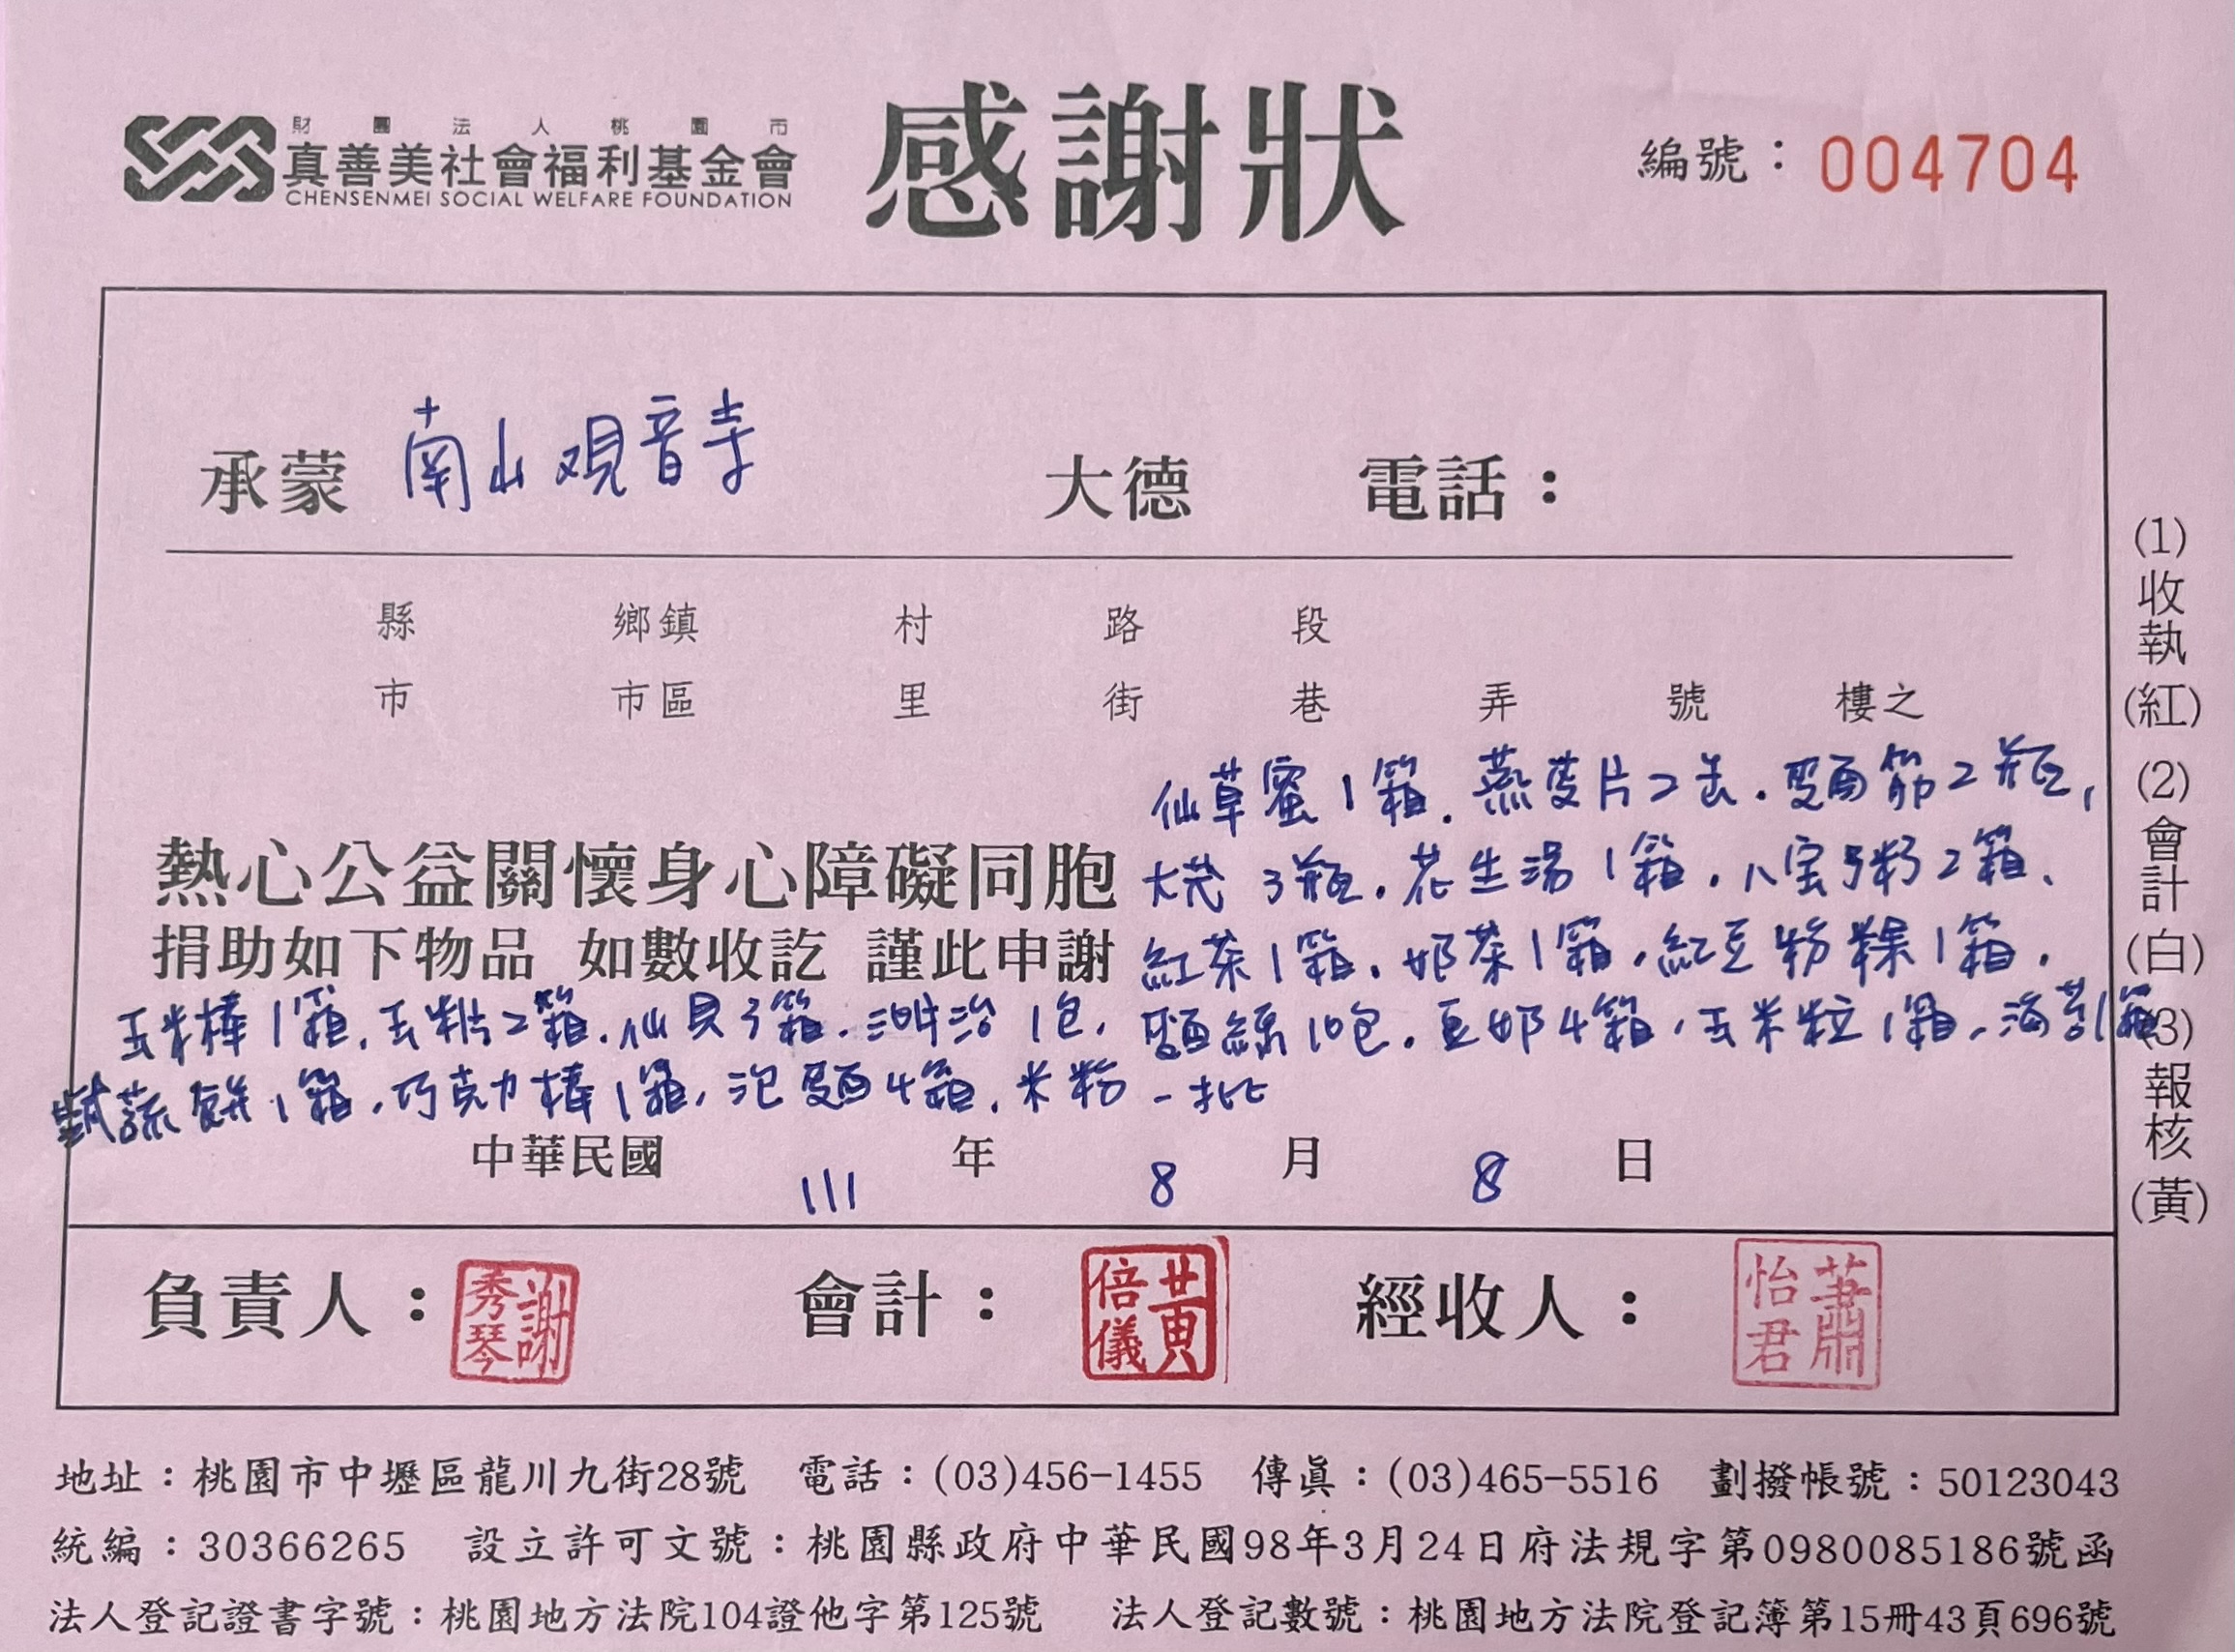 財團法人桃園市
真善美社會福利基金會
CHENSENMEI SOCIAL WELFARE FOUNDATION
感謝狀
編號：004704
承蒙 南山观音寺 大德 電話：
縣 鄉鎮 村 路 段
市 市區 里 街 巷 弄 號 樓之
仙草蜜1箱.燕麥片2缶.麵筋2瓶,
熱心公益關懷身心障礙同胞 大茂3瓶.花生湯1箱.八宝粥2箱、
捐助如下物品 如數收訖 謹此申謝 紅茶1箱.奶茶1箱.紅豆粉粿1箱.
玉米棒1箱.玉米片2箱.仙貝3箱. 1包, 麵線10包.豆奶4箱.玉米粒1箱.海苔1箱
蔬餅1箱.巧克力棒1箱,泡麵4箱.米粉一批
中華民國 111 年 8 月 8 日
負責人：謝秀琴 會計：黃倍儀 經收人：蕭怡君
(1)收執(紅) (2)會計(白) (3)報核(黃)
地址：桃園市中壢區龍川九街28號 電話：(03)456-1455 傳真：(03)465-5516 劃撥帳號：50123043
統編：30366265 設立許可文號：桃園縣政府中華民國98年3月24日府法規字第0980085186號函
法人登記證書字號：桃園地方法院104證他字第125號 法人登記數號：桃園地方法院登記簿第15冊43頁696號